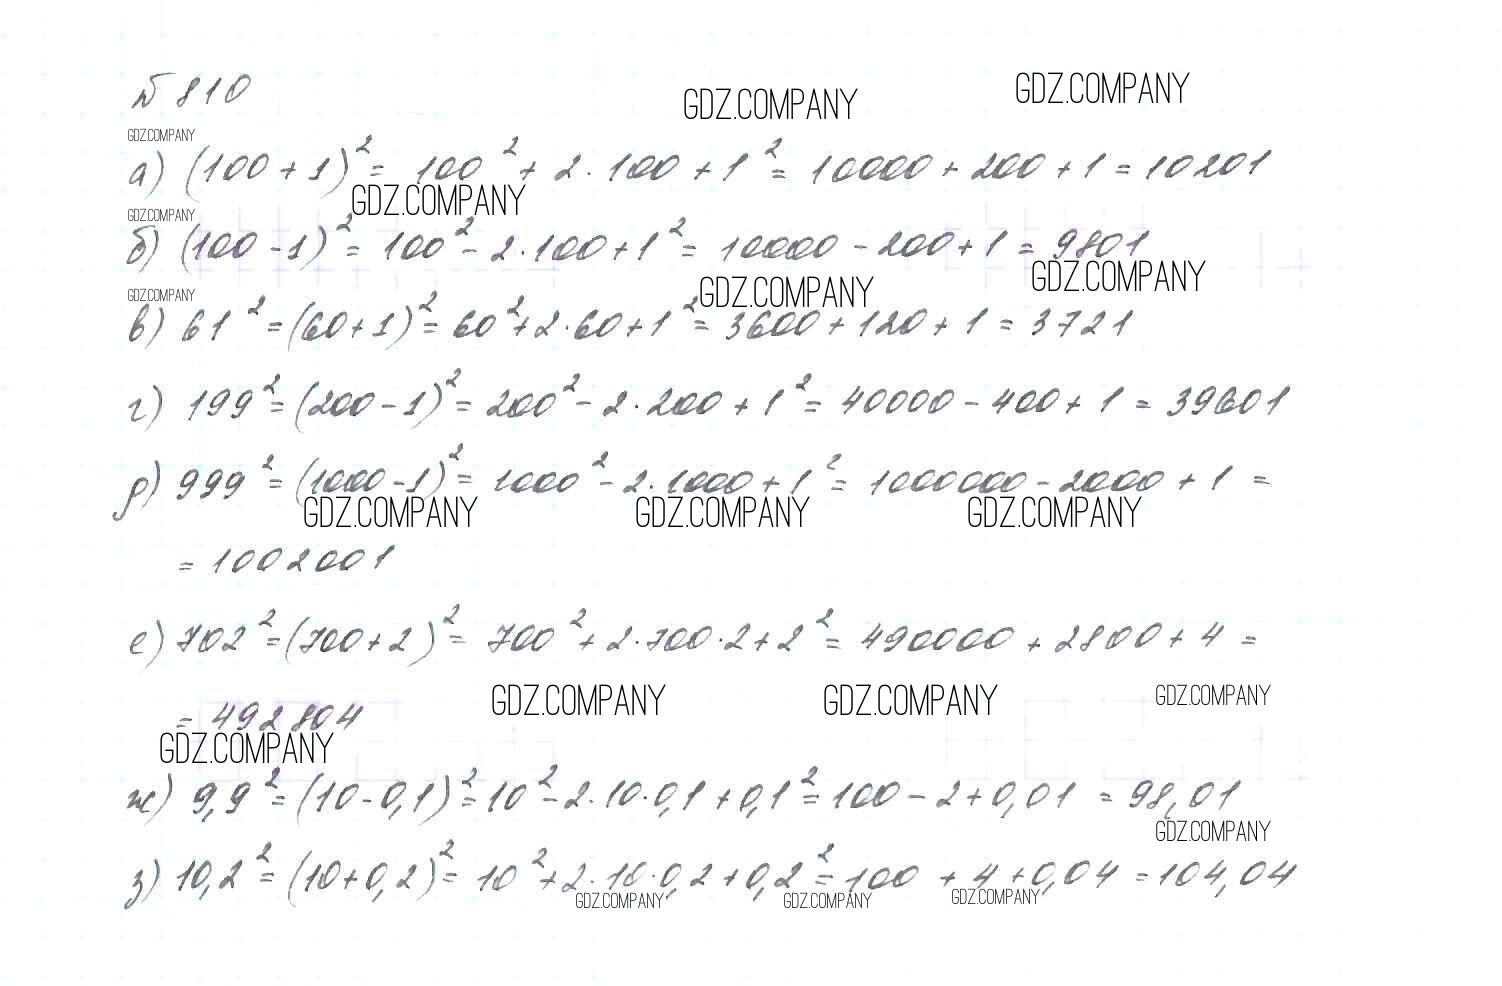 № 810
GDZ.COMPANY GDZ.COMPANY
GDZ.COMPANY
а) (100 + 1)² = 100² + 2 · 100 + 1² = 10000 + 200 + 1 = 10201
GDZ.COMPANY
GDZ.COMPANY
б) (100 - 1)² = 100² - 2 · 100 + 1² = 10000 - 200 + 1 = 9801
GDZ.COMPANY GDZ.COMPANY
GDZ.COMPANY
в) 61² = (60 + 1)² = 60² + 2 · 60 + 1² = 3600 + 120 + 1 = 3721
г) 199² = (200 - 1)² = 200² - 2 · 200 + 1² = 40000 - 400 + 1 = 39601
д) 999² = (1000 - 1)² = 1000² - 2 · 1000 + 1² = 1000000 - 2000 + 1 =
GDZ.COMPANY GDZ.COMPANY GDZ.COMPANY
= 1002001
е) 702² = (700 + 2)² = 700² + 2 · 700 · 2 + 2² = 490000 + 2800 + 4 =
GDZ.COMPANY GDZ.COMPANY GDZ.COMPANY
= 492804
GDZ.COMPANY
ж) 9,9² = (10 - 0,1)² = 10² - 2 · 10 · 0,1 + 0,1² = 100 - 2 + 0,01 = 98,01
GDZ.COMPANY
з) 10,2² = (10 + 0,2)² = 10² + 2 · 10 · 0,2 + 0,2² = 100 + 4 + 0,04 = 104,04
GDZ.COMPANY GDZ.COMPANY GDZ.COMPANY